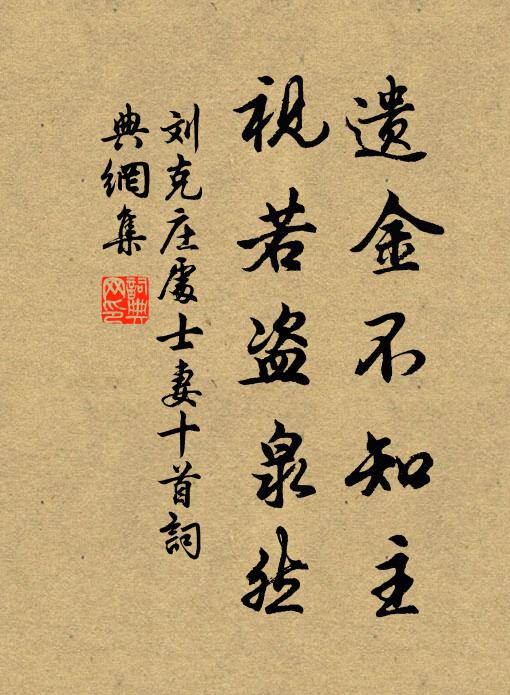 遗金不知主
视若盗泉然
刘克庄处士妻十首词
典網集
詞典
网印